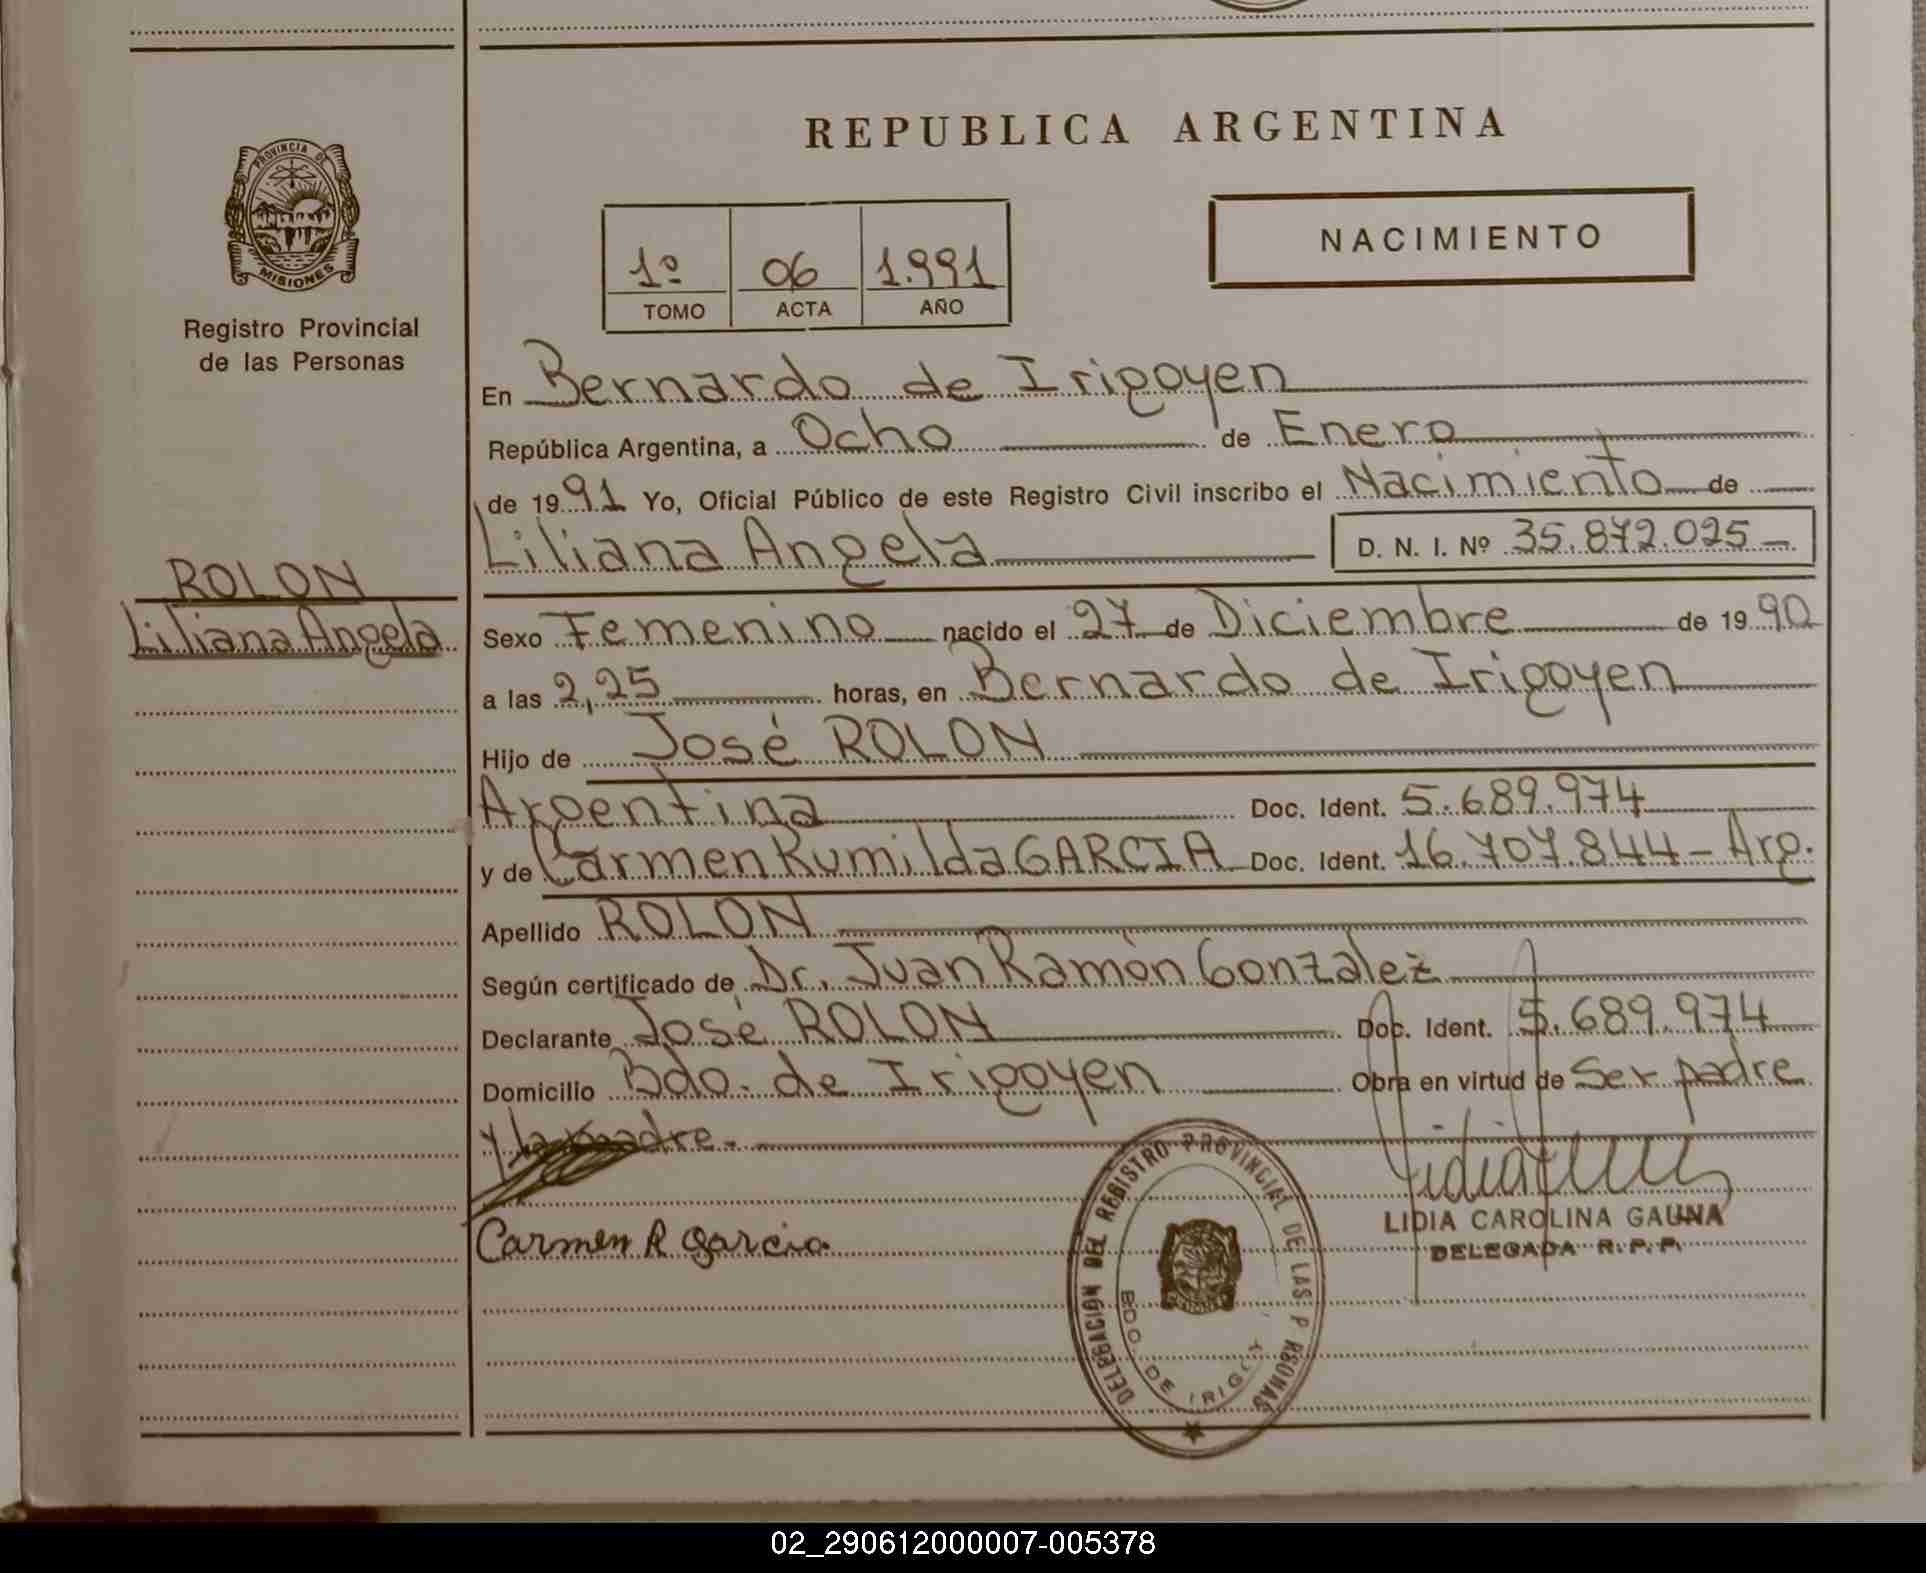 REPUBLICA ARGENTINA
PROVINCIA DE
MISIONES
Registro Provincial
de las Personas
NACIMIENTO
1º 06 1.991
TOMO ACTA AÑO
En Bernardo de Irigoyen
República Argentina, a Ocho de Enero
de 1991 Yo, Oficial Público de este Registro Civil inscribo el Nacimiento de
Liliana Angela D. N. I. Nº 35.872.025
ROLON
Liliana Angela
Sexo Femenino nacido el 27 de Diciembre de 1990
a las 2,25 horas, en Bernardo de Irigoyen
Hijo de José ROLON
Argentina Doc. Ident. 5.689.974
y de Carmen Rumilda GARCIA Doc. Ident. 16.707.844 - Arg.
Apellido ROLON
Según certificado de Dr. Juan Ramón Gonzalez
Declarante José ROLON Doc. Ident. 5.689.974
Domicilio Bdo. de Irigoyen Obra en virtud de Ser padre
y la madre.-
Carmen R Garcia
LIDIA CAROLINA GAUNA
DELEGADA R. P. P.
DELEGACION DEL REGISTRO PROVINCIAL DE LAS P RSONAS
BDO. DE IRIGOY
02_290612000007-005378